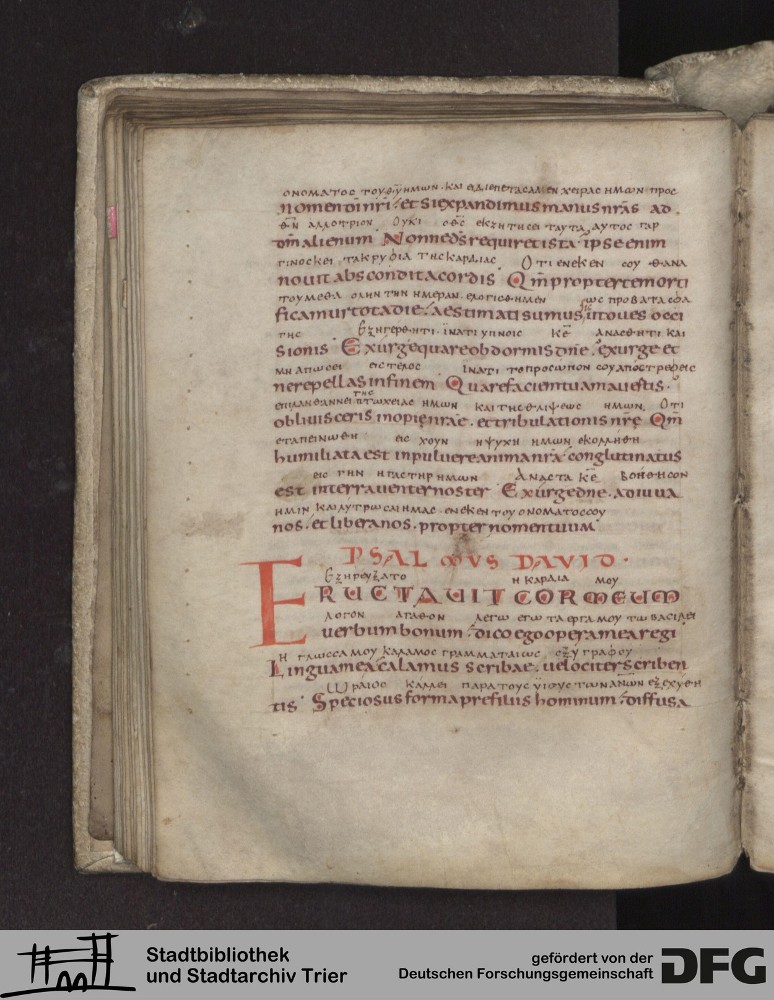 ονοματος του θυ ημων · και ει διεπετασαμεν χειρας ημων προς
nomen dī nr̄i · et si expandimus manus nrās ad
θν αλλοτριον ουχι ο θς εκζητησει ταυτα αυτος γαρ
dm̄ alienum Nonne ds̄ requiret ista · ipse enim
γινοσκει τα κρυφια της καρδιας Οτι ενεκεν σου θανα
novit abscondita cordis Qm̄ propter te morti
τουμεθα ολην την ημεραν ελογισθημεν ως προβατα σφα
ficamur tota die · aestimati sumus ut oves occi
γης Εξηγερθητι · ϊνατι υπνοις κε αναστηθι και
sionis · Exurge quare obdormis dn̄e · exurge et
μη απωσει εις τελος ϊνατι το προσωπον σου αποστρεφεις
ne repellas in finem Quare faciem tuam avertis ·
επιλανθαννει της πτωχειας ημων και της θλιψεως ημων. Οτι
oblivisceris inopię nrāe · et tribulationis nrę Qm̄
εταπεινωθη εις χουν η ψυχη ημων εκολληθη
humiliata est in pulvere anima nrā · conglutinatus
εις γην η γαστηρ ημων Αναστα κε βοηθησον
est in terra venter noster Exurge dne · adiuva
ημιν και λυτρωσαι ημας · ενεκεν του ονοματος σου
nos · et libera nos · propter nomen tuum
PSALMUS DAVID ·
Εξηρευξατο η καρδια μου
ERUCTAVIT COR MEUM
λογον αγαθον λεγω εγω τα εργα μου τω βασιλει
verbum bonum · dico ego opera mea regi
Η γλωσσα μου καλαμος γραμματαιως οξυγραφου
Lingua mea calamus scribae · velociter scriben
Ωραιος καλλει παρα τους υϊους των ανων εξεχυθη
tis · Speciosus forma pre filiis hominum · diffusa
Stadtbibliothek
und Stadtarchiv Trier
gefördert von der
Deutschen Forschungsgemeinschaft
DFG